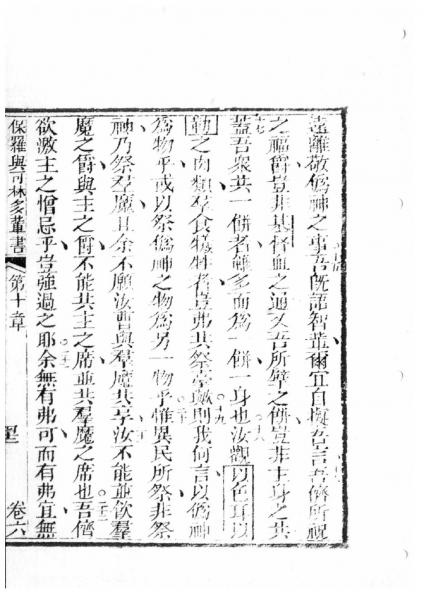 遠離敬僞神之事吾既語智輩爾宜自揣吾言吾儕所祝
之福爵豈非基督血之通又吾所擘之餅豈非主身之共
蓋吾衆共一餅者雖多而爲一餅一身也汝觀以色耳以
勒之肉類羣食犧牲者豈弗共祭臺歟則我何言以僞神
爲物乎或以祭僞神之物爲另一物乎惟異民所祭非祭
神乃祭羣魔且余不願汝曹與羣魔共享汝不能並飲羣
魔之爵與主之爵不能共主之席並共羣魔之席也吾儕
欲激主之憎忌乎豈強過之耶余無有弗可而有弗宜無
保羅與可林多輩書 第十章 卷六